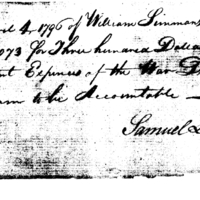 il 4, 1796 of William Simmons
073 for Three hundred Dolla
nt Expences of the War D
am to be Accountable
Samuel